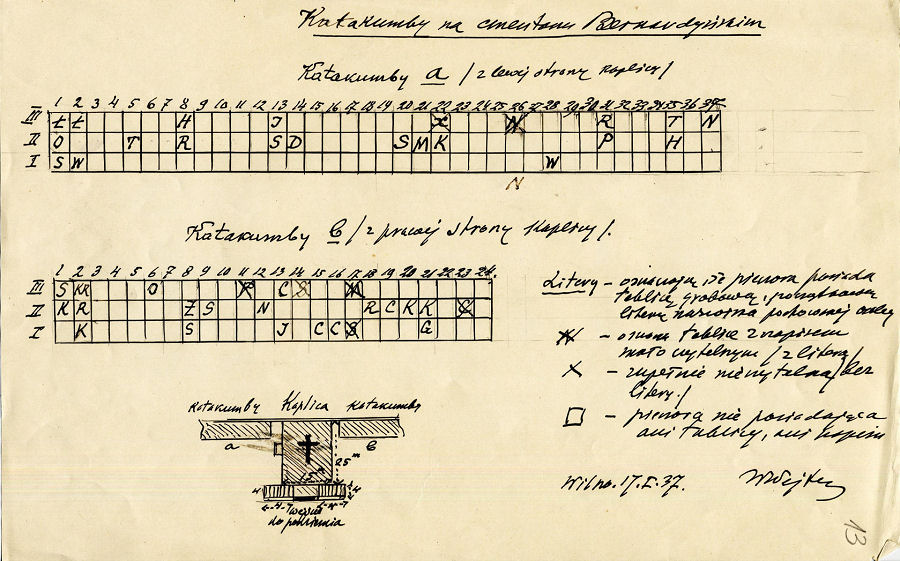 Katakumby na cmentarzu Bernardyńskim
Katakumby a /z lewej strony kaplicy/
1 2 3 4 5 6 7 8 9 10 11 12 13 14 15 16 17 18 19 20 21 22 23 24 25 26 27 28 29 30 31 32 33 34 35 36 37
III Ł Ł H J X N R T N
II O T R S D S M K P H
I S W W
N
Katakumby b /z prawej strony kaplicy/.
1 2 3 4 5 6 7 8 9 10 11 12 13 14 15 16 17 18 19 20 21 22 23 24
III S KR O P C S N
II K R Z S N R C K K C
I K S J C C S G
Litery – oznaczają iż pieczora posiada
tablicę grobową, początkową
literę nazwiska pochowanej osoby
N – oznacza tablicę z napisem
mało czytelnym /z literą/
X – zupełnie nieczytelną /bez
litery./
□ – pieczora nie posiadająca
ani tablicy, ani napisu
Katakumby Kaplica Katakumby
a b
25 m
15 m
4 4
wejście
do podziemia
Wilno. 17.I.37.
13